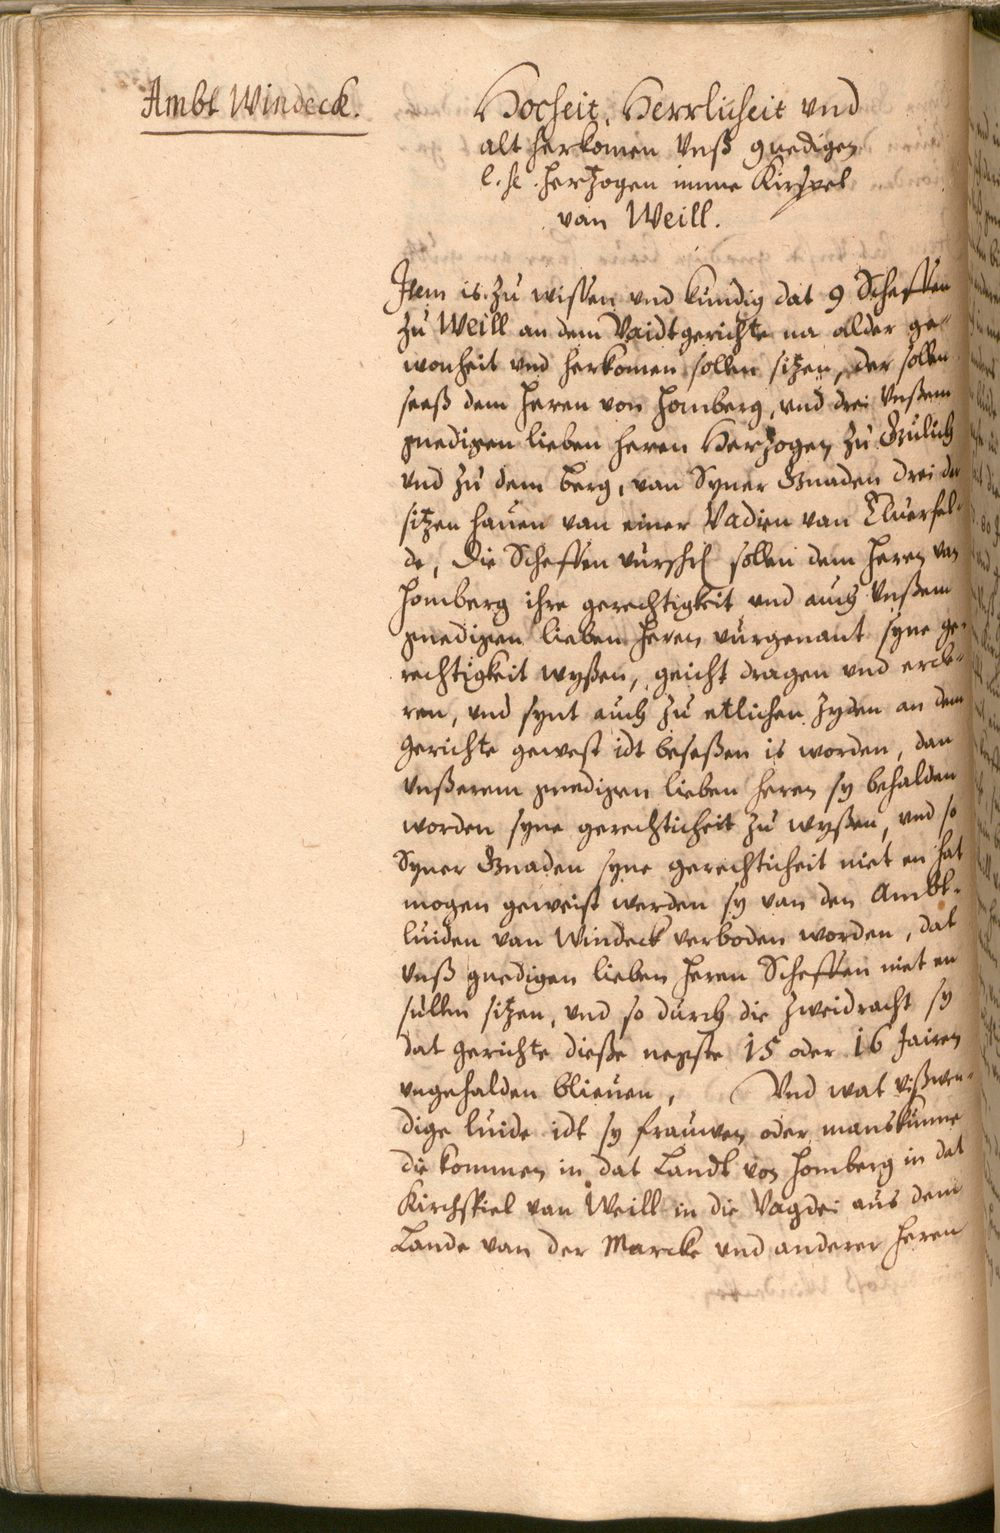 Ambt Windeck.
Hocheit, Herrlicheit vnd
alt herkomen Vnß gnedigen
l. h. hertzogen imme Kirspel
van Weill.
Item is zu wissen vnd kundig dat 9 Scheffen
zu Weill an dem Vaidtgerichte na alder ge-
wonheit vnd herkomen sollen sitzen, der sollen
seeß dem heren von Homberg, vnd drei Vnßem
gnedigen lieben heren Hertzogen zu Gulich
vnd zu dem berg, van Syner Gnaden drei der
sitzen hauen van einer Vadien van Eluerfel-
de, Die Scheffen vurschr sollen dem heren van
Homberg ihre gerechtigkeit vnd auch Vnßem
gnedigen lieben heren vurgenant syne ge-
rechtigkeit wyßen, geicht dragen vnd ercle-
ren, vnd synt auch zu etlichen zyden an dem
gerichte gewest idt beseßen is worden, dan
Vnßerem gnedigen lieben heren sy behalden
worden syne gerechticheit zu wyßen, vnd so
Syner Gnaden syne gerechticheit niet en hat
mogen geweist werden sy van den Ambt-
luiden van Windeck verboden worden, dat
Vnß gnedigen lieben heren Scheffen niet en
sullen sitzen, vnd so durch die zweidracht sy
dat gerichte dieße negste 15 oder 16 Jairen
vngehalden blieuen, Vnd wat vißwen-
dige luide idt sy frauwen oder manskunne
die kommen in dat Landt von Homberg in dat
Kirchspiel van Weill in die Vagdei aus dem
Lande van der Marcke vnd anderer heren